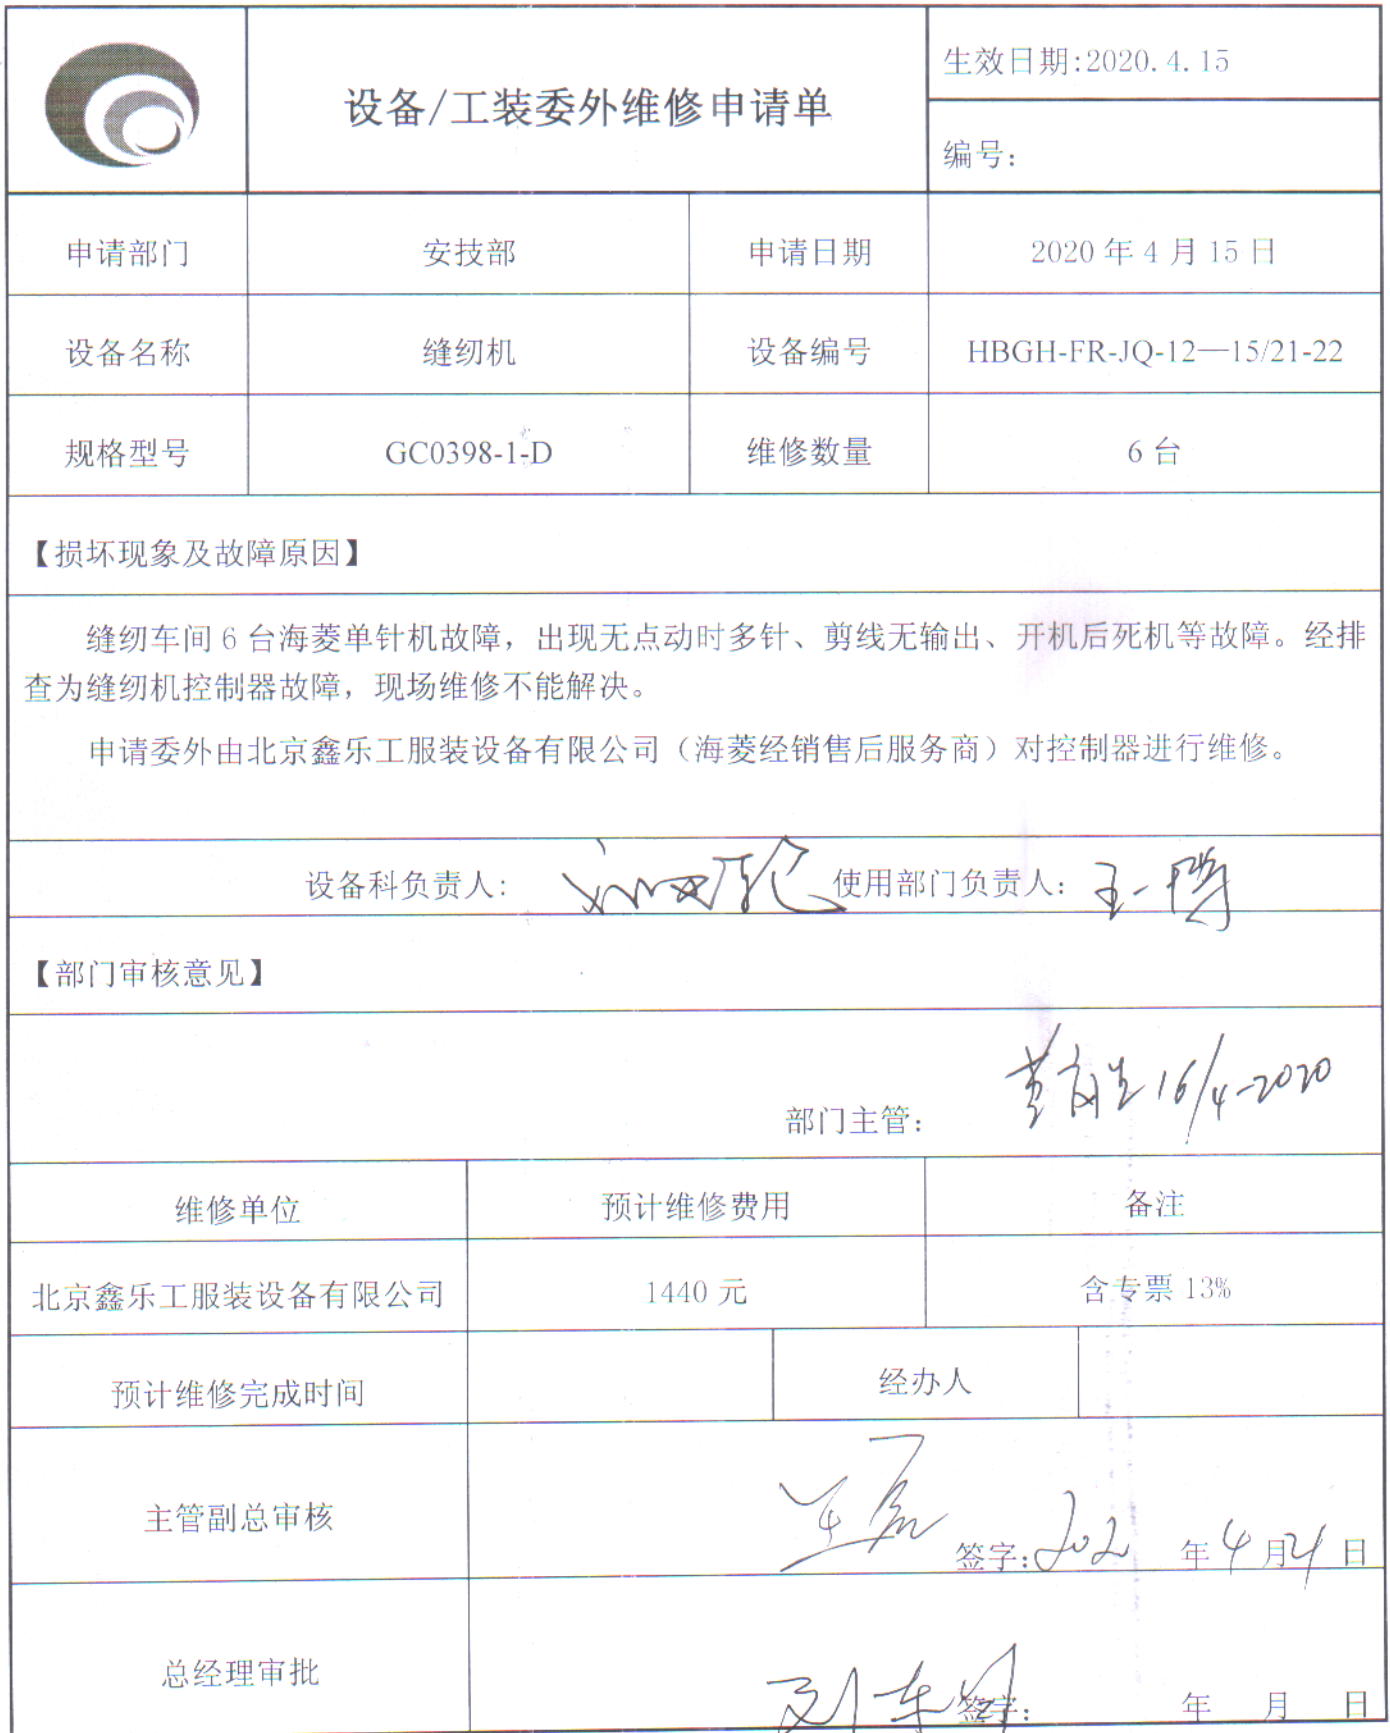 设备/工装委外维修申请单
生效日期:2020.4.15
编号:
申请部门 安技部 申请日期 2020 年 4 月 15 日
设备名称 缝纫机 设备编号 HBGH-FR-JQ-12—15/21-22
规格型号 GC0398-1-D 维修数量 6 台
【损坏现象及故障原因】
缝纫车间 6 台海菱单针机故障，出现无点动时多针、剪线无输出、开机后死机等故障。经排
查为缝纫机控制器故障，现场维修不能解决。
申请委外由北京鑫乐工服装设备有限公司（海菱经销售后服务商）对控制器进行维修。
设备科负责人: 使用部门负责人: 王一博
【部门审核意见】
部门主管: 16/4-2020
维修单位 预计维修费用 备注
北京鑫乐工服装设备有限公司 1440 元 含专票 13%
预计维修完成时间 经办人
主管副总审核 签字: 202 年 4 月 21 日
总经理审批 签字: 年 月 日